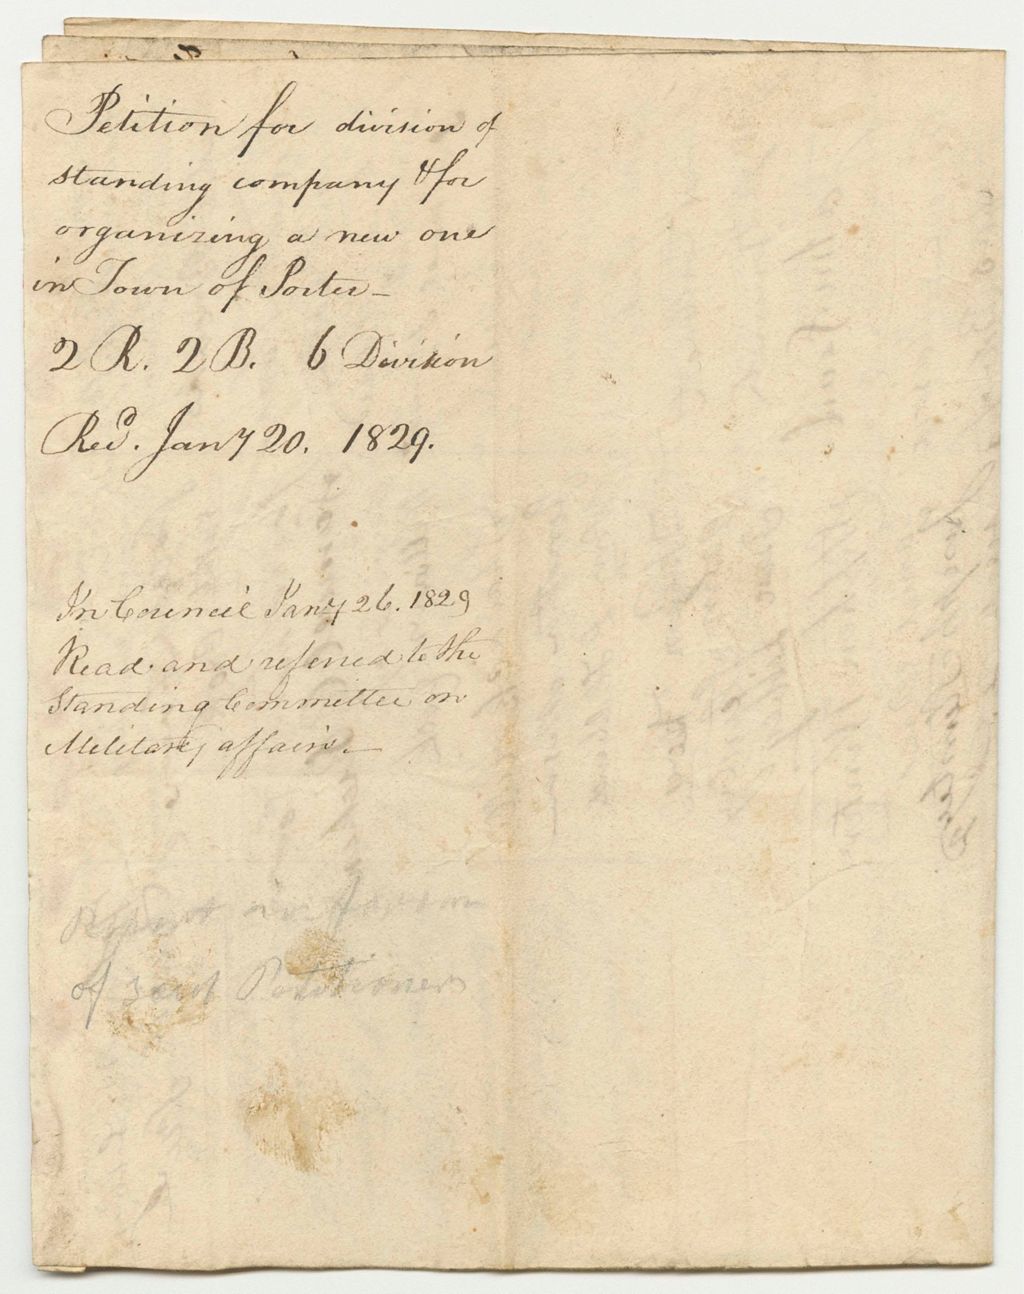 Petition for division of
standing company & for
organizing a new one
in Town of Porter -
2 R. 2 B. 6 Division
Recd. Jany 20. 1829.
In Council Jany 26. 1829
Read and referred to the
Standing Committee on
Military affairs. -
Report in favour
of said Petitioners